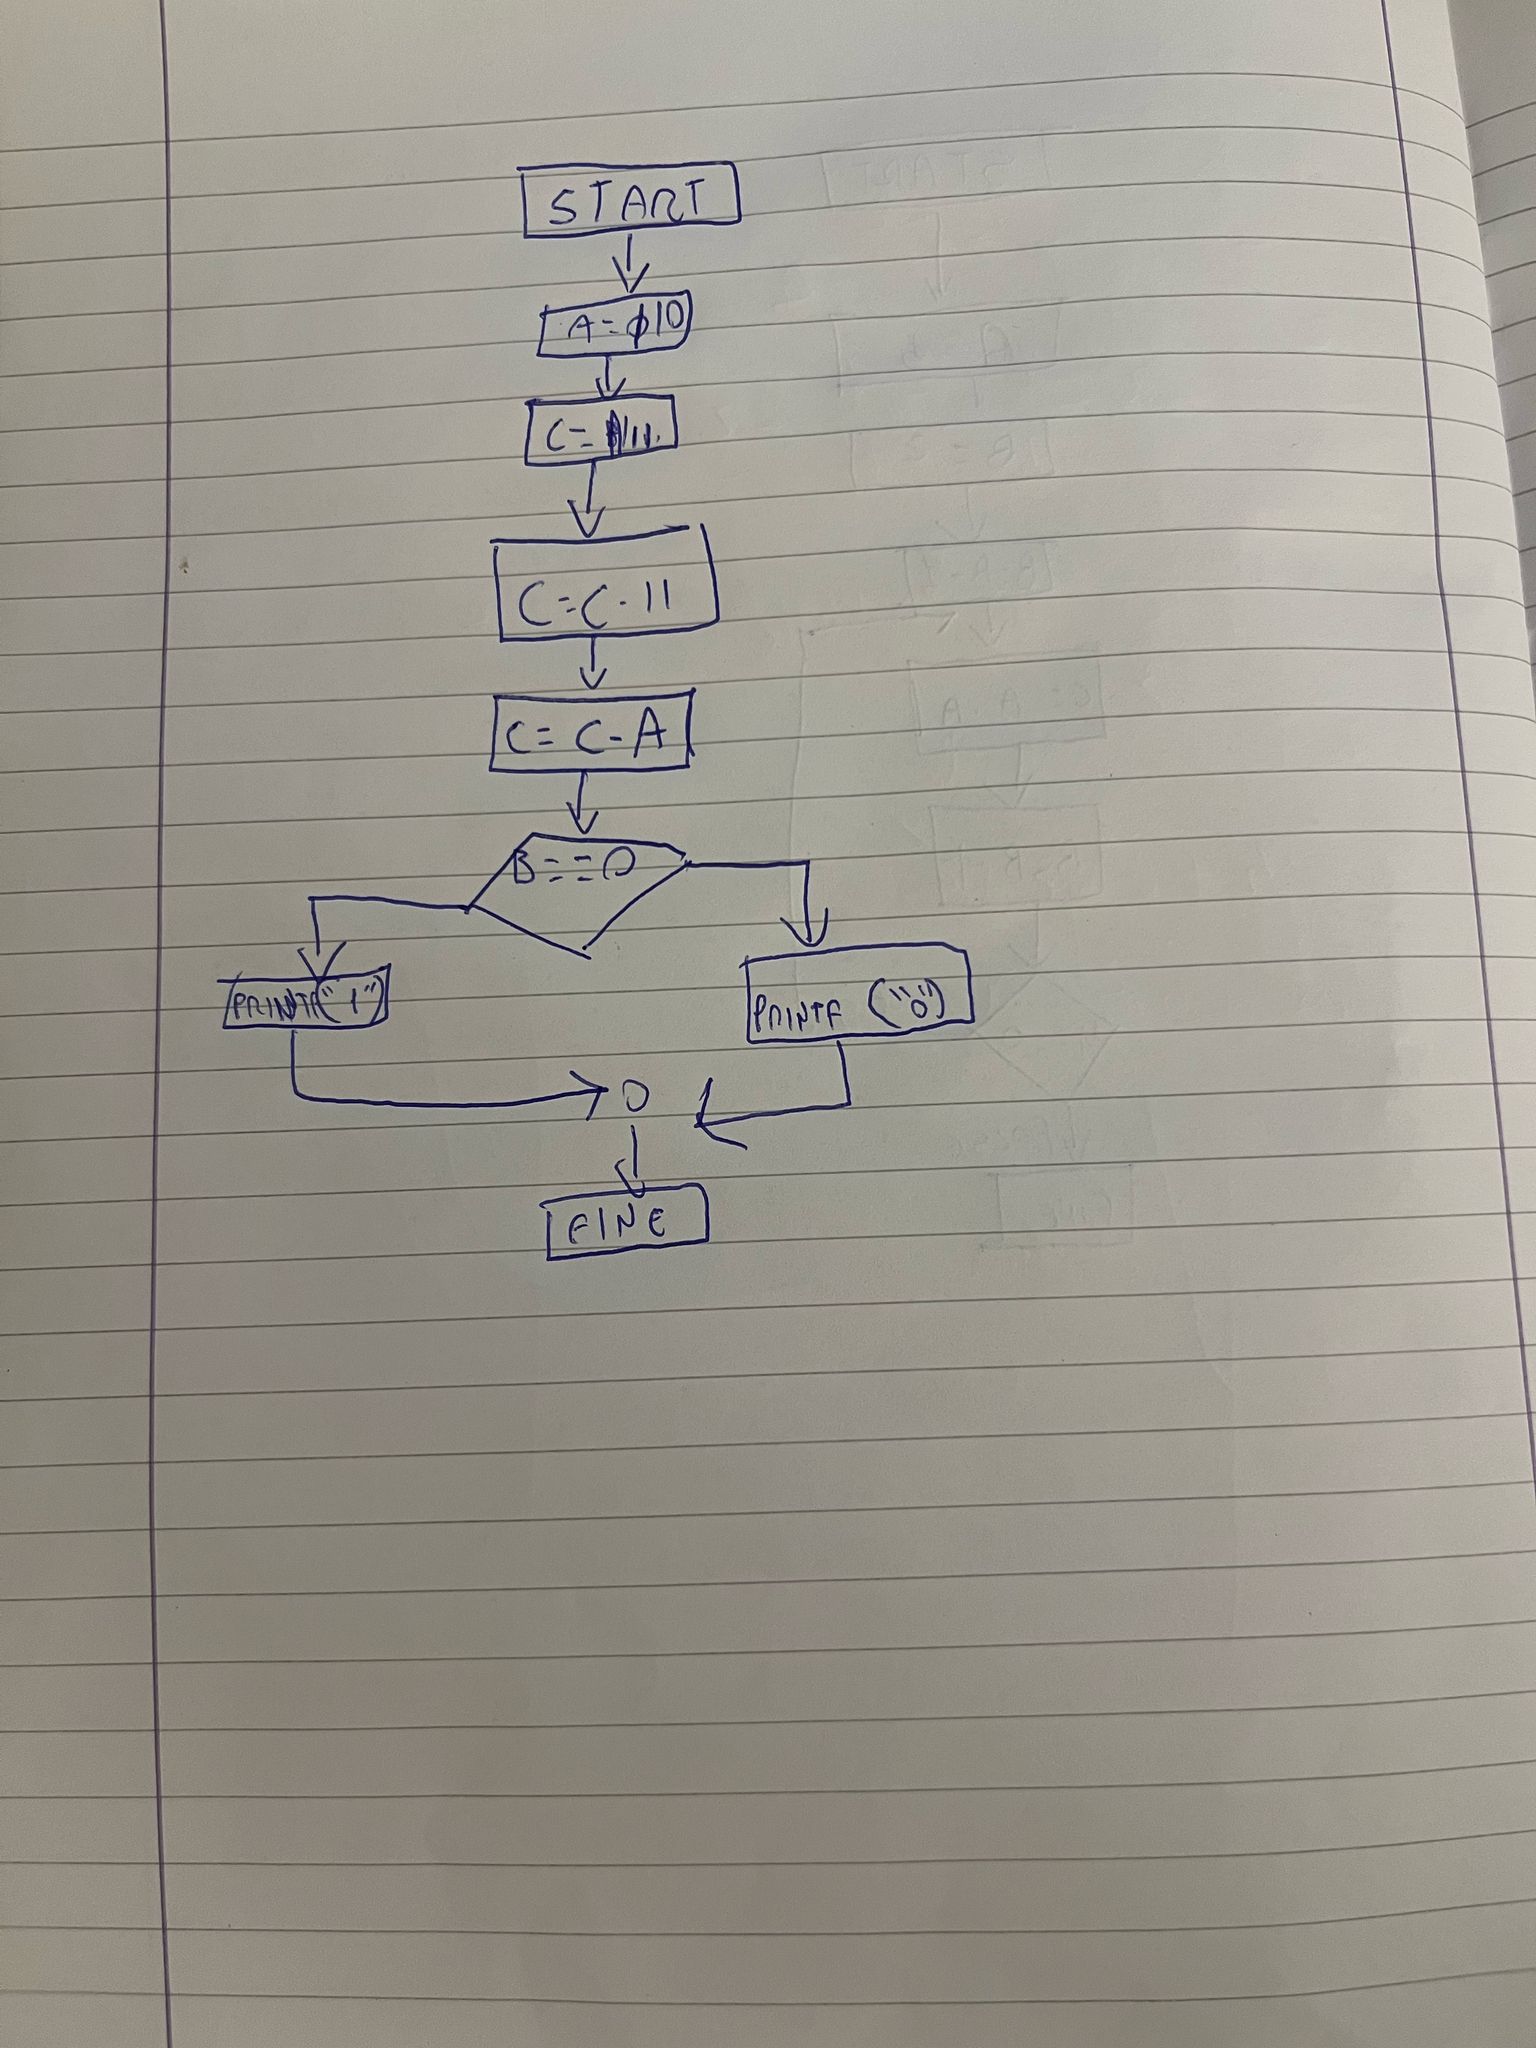 START
A=10
C=11
C=C-11
C=C-A
B==0
PRINTF("1")
PRINTF ("0")
O
FINE